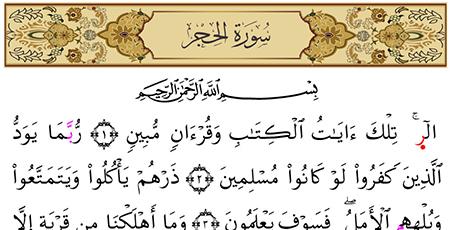 سُورَةُ الحِجْرِ
بِسْمِ اللَّهِ الرَّحْمَٰنِ الرَّحِيمِ
الٓرۚ تِلْكَ ءَايَٰتُ ٱلْكِتَٰبِ وَقُرْءَانٍ مُّبِينٍ ﴿١﴾ رُّبَمَا يَوَدُّ
ٱلَّذِينَ كَفَرُوا۟ لَوْ كَانُوا۟ مُسْلِمِينَ ﴿٢﴾ ذَرْهُمْ يَأْكُلُوا۟ وَيَتَمَتَّعُوا۟
وَيُلْهِهِمُ ٱلْأَمَلُۖ فَسَوْفَ يَعْلَمُونَ ﴿٣﴾ وَمَآ أَهْلَكْنَا مِن قَرْيَةٍ إِلَّا